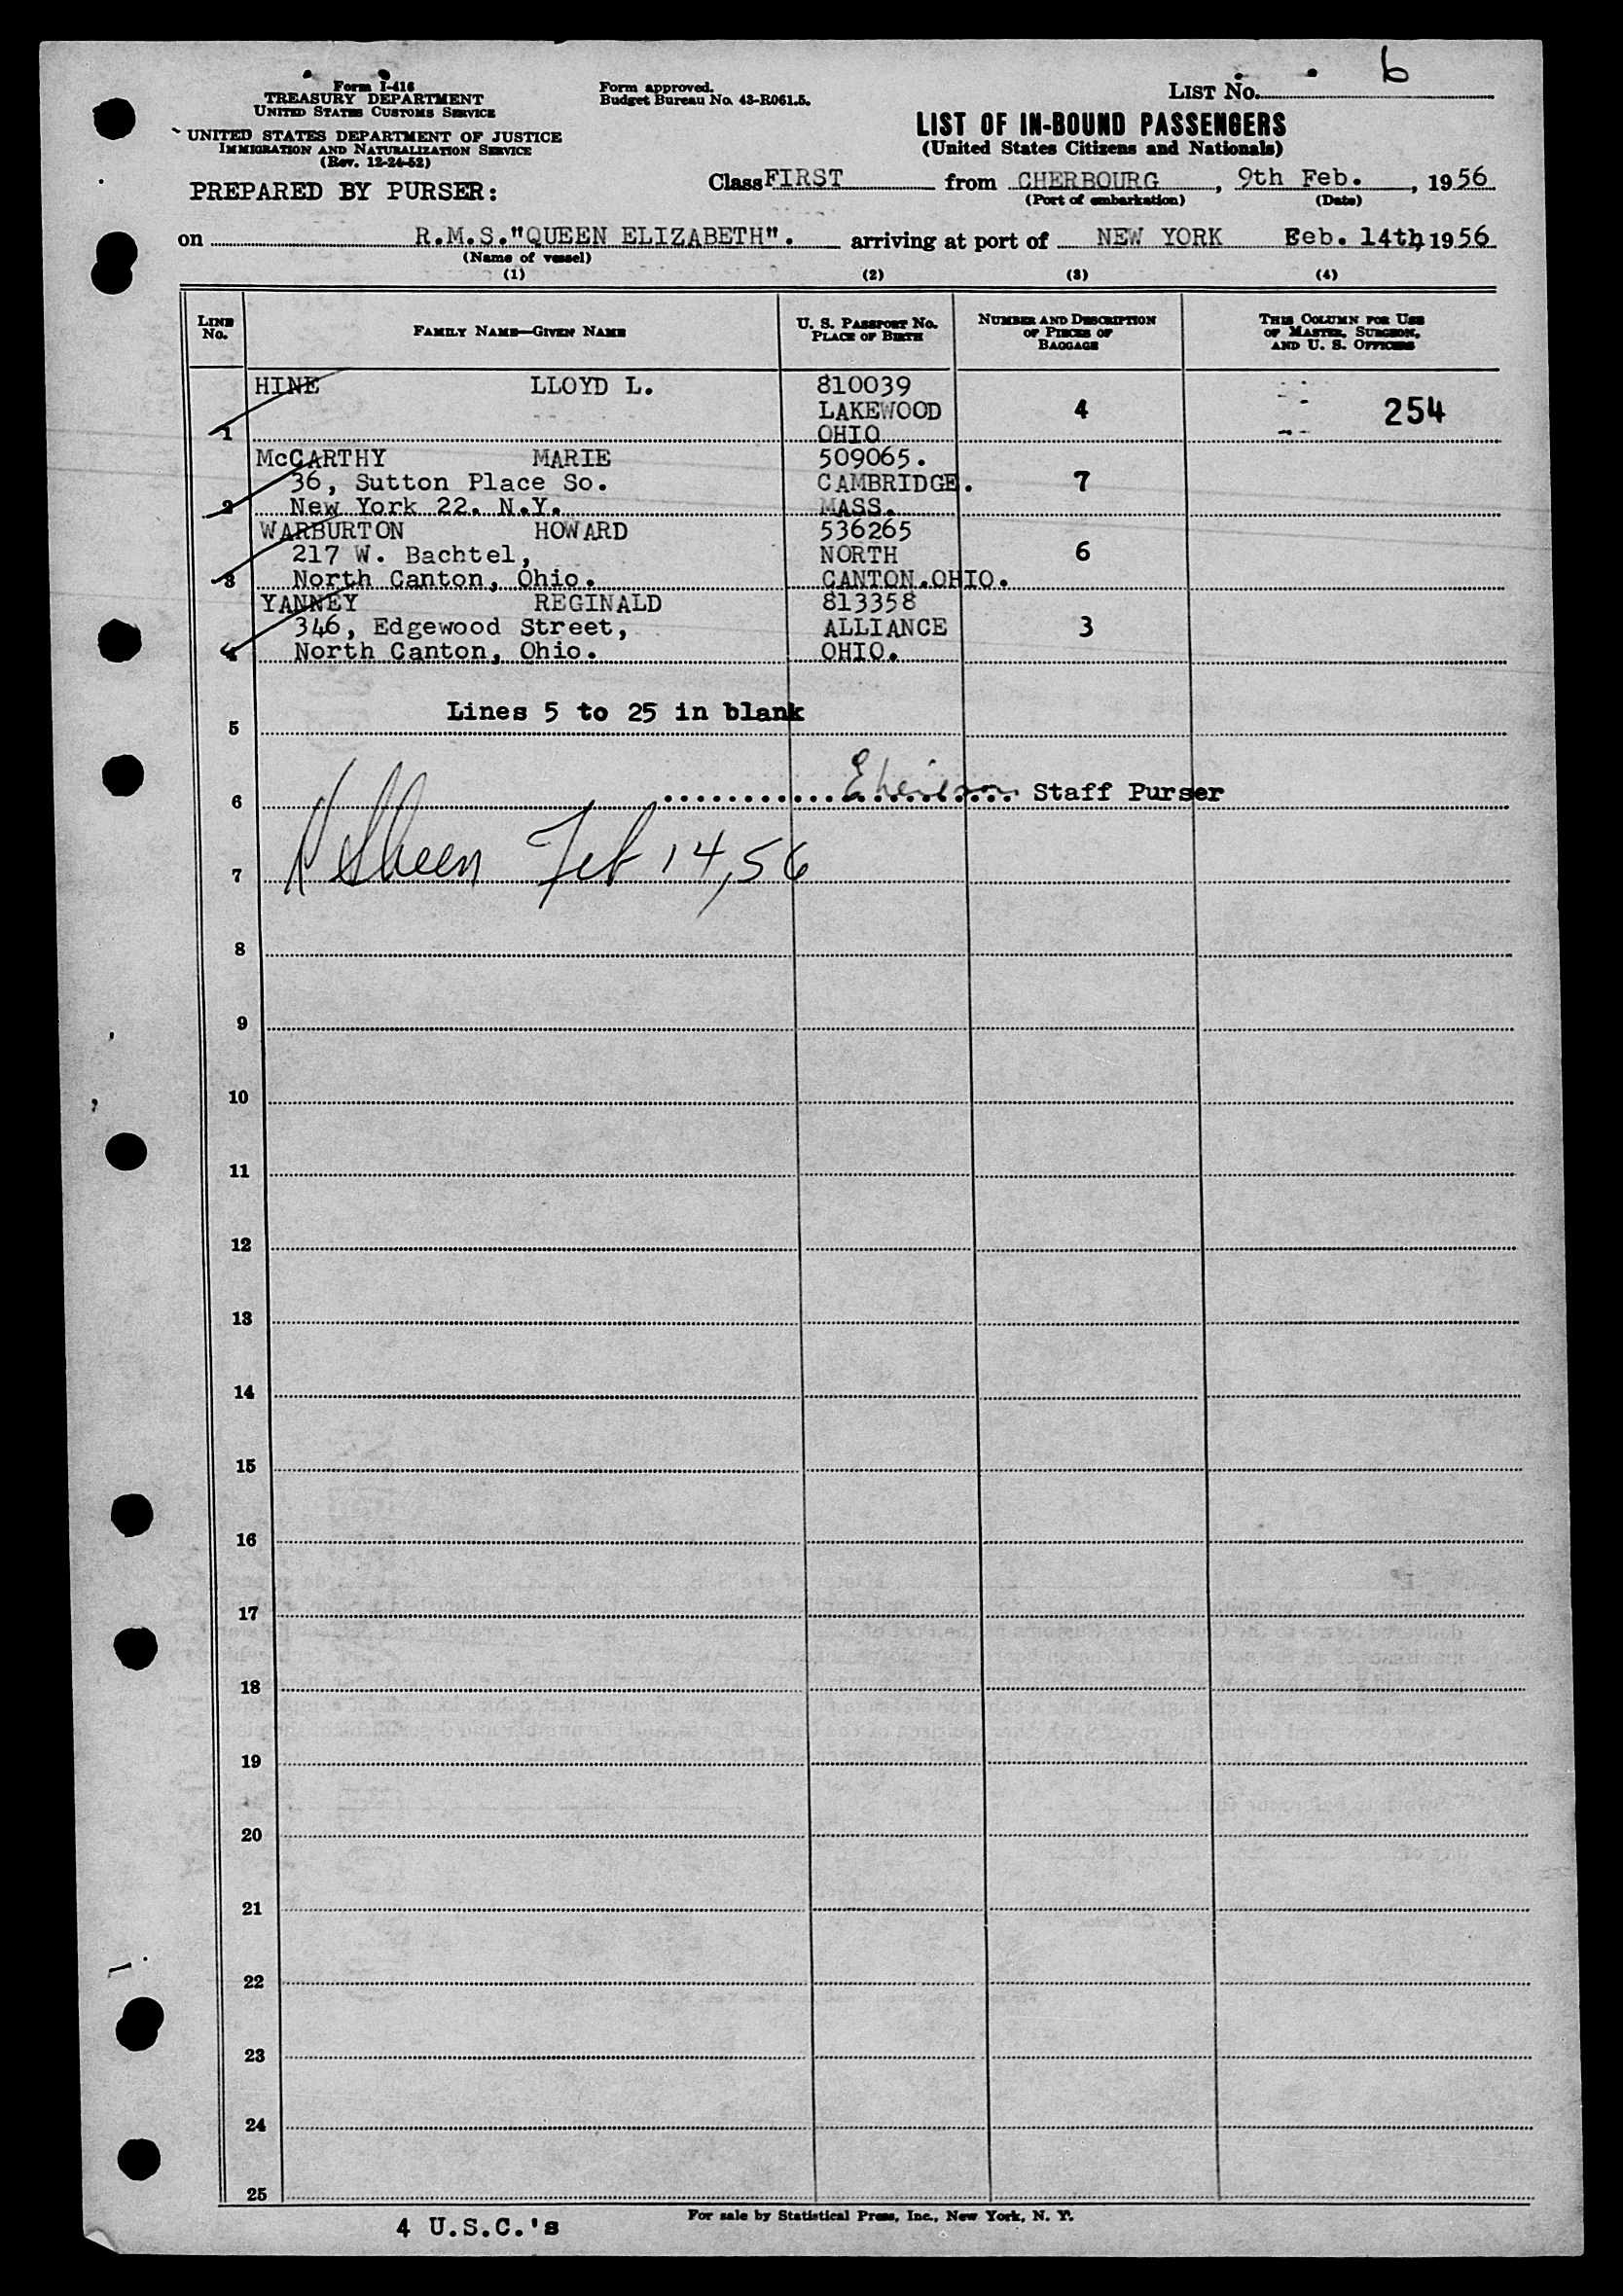 Form I-416
TREASURY DEPARTMENT
UNITED STATES CUSTOMS SERVICE
UNITED STATES DEPARTMENT OF JUSTICE
IMMIGRATION AND NATURALIZATION SERVICE
(Rev. 12-24-52)
PREPARED BY PURSER:
Form approved.
Budget Bureau No. 43-R061.5.
LIST NO. 6
LIST OF IN-BOUND PASSENGERS
(United States Citizens and Nationals)
Class FIRST from CHERBOURG, 9th Feb., 1956
(Port of embarkation) (Date)
on R.M.S."QUEEN ELIZABETH". arriving at port of NEW YORK Feb. 14th, 1956
(Name of vessel)
(1) (2) (3) (4)
LINE No.
FAMILY NAME—GIVEN NAME
U. S. PASSPORT NO.
PLACE OF BIRTH
NUMBER AND DESCRIPTION
OF PIECES OF
BAGGAGE
THIS COLUMN FOR USE
OF MASTER, SURGEON,
AND U. S. OFFICERS
HINE LLOYD L. 810039
LAKEWOOD 4 254
1 OHIO
McCARTHY MARIE 509065.
36, Sutton Place So. CAMBRIDGE. 7
2 New York 22. N.Y. MASS.
WARBURTON HOWARD 536265
217 W. Bachtel, NORTH 6
3 North Canton, Ohio. CANTON.OHIO.
YANNEY REGINALD 813358
346, Edgewood Street, ALLIANCE 3
4 North Canton, Ohio. OHIO.
Lines 5 to 25 in blank
5
6 Staff Purser
7 Feb 14, 56
8
9
10
11
12
13
14
15
16
17
18
19
20
21
22
23
24
25
4 U.S.C.'s
For sale by Statistical Press, Inc., New York, N. Y.